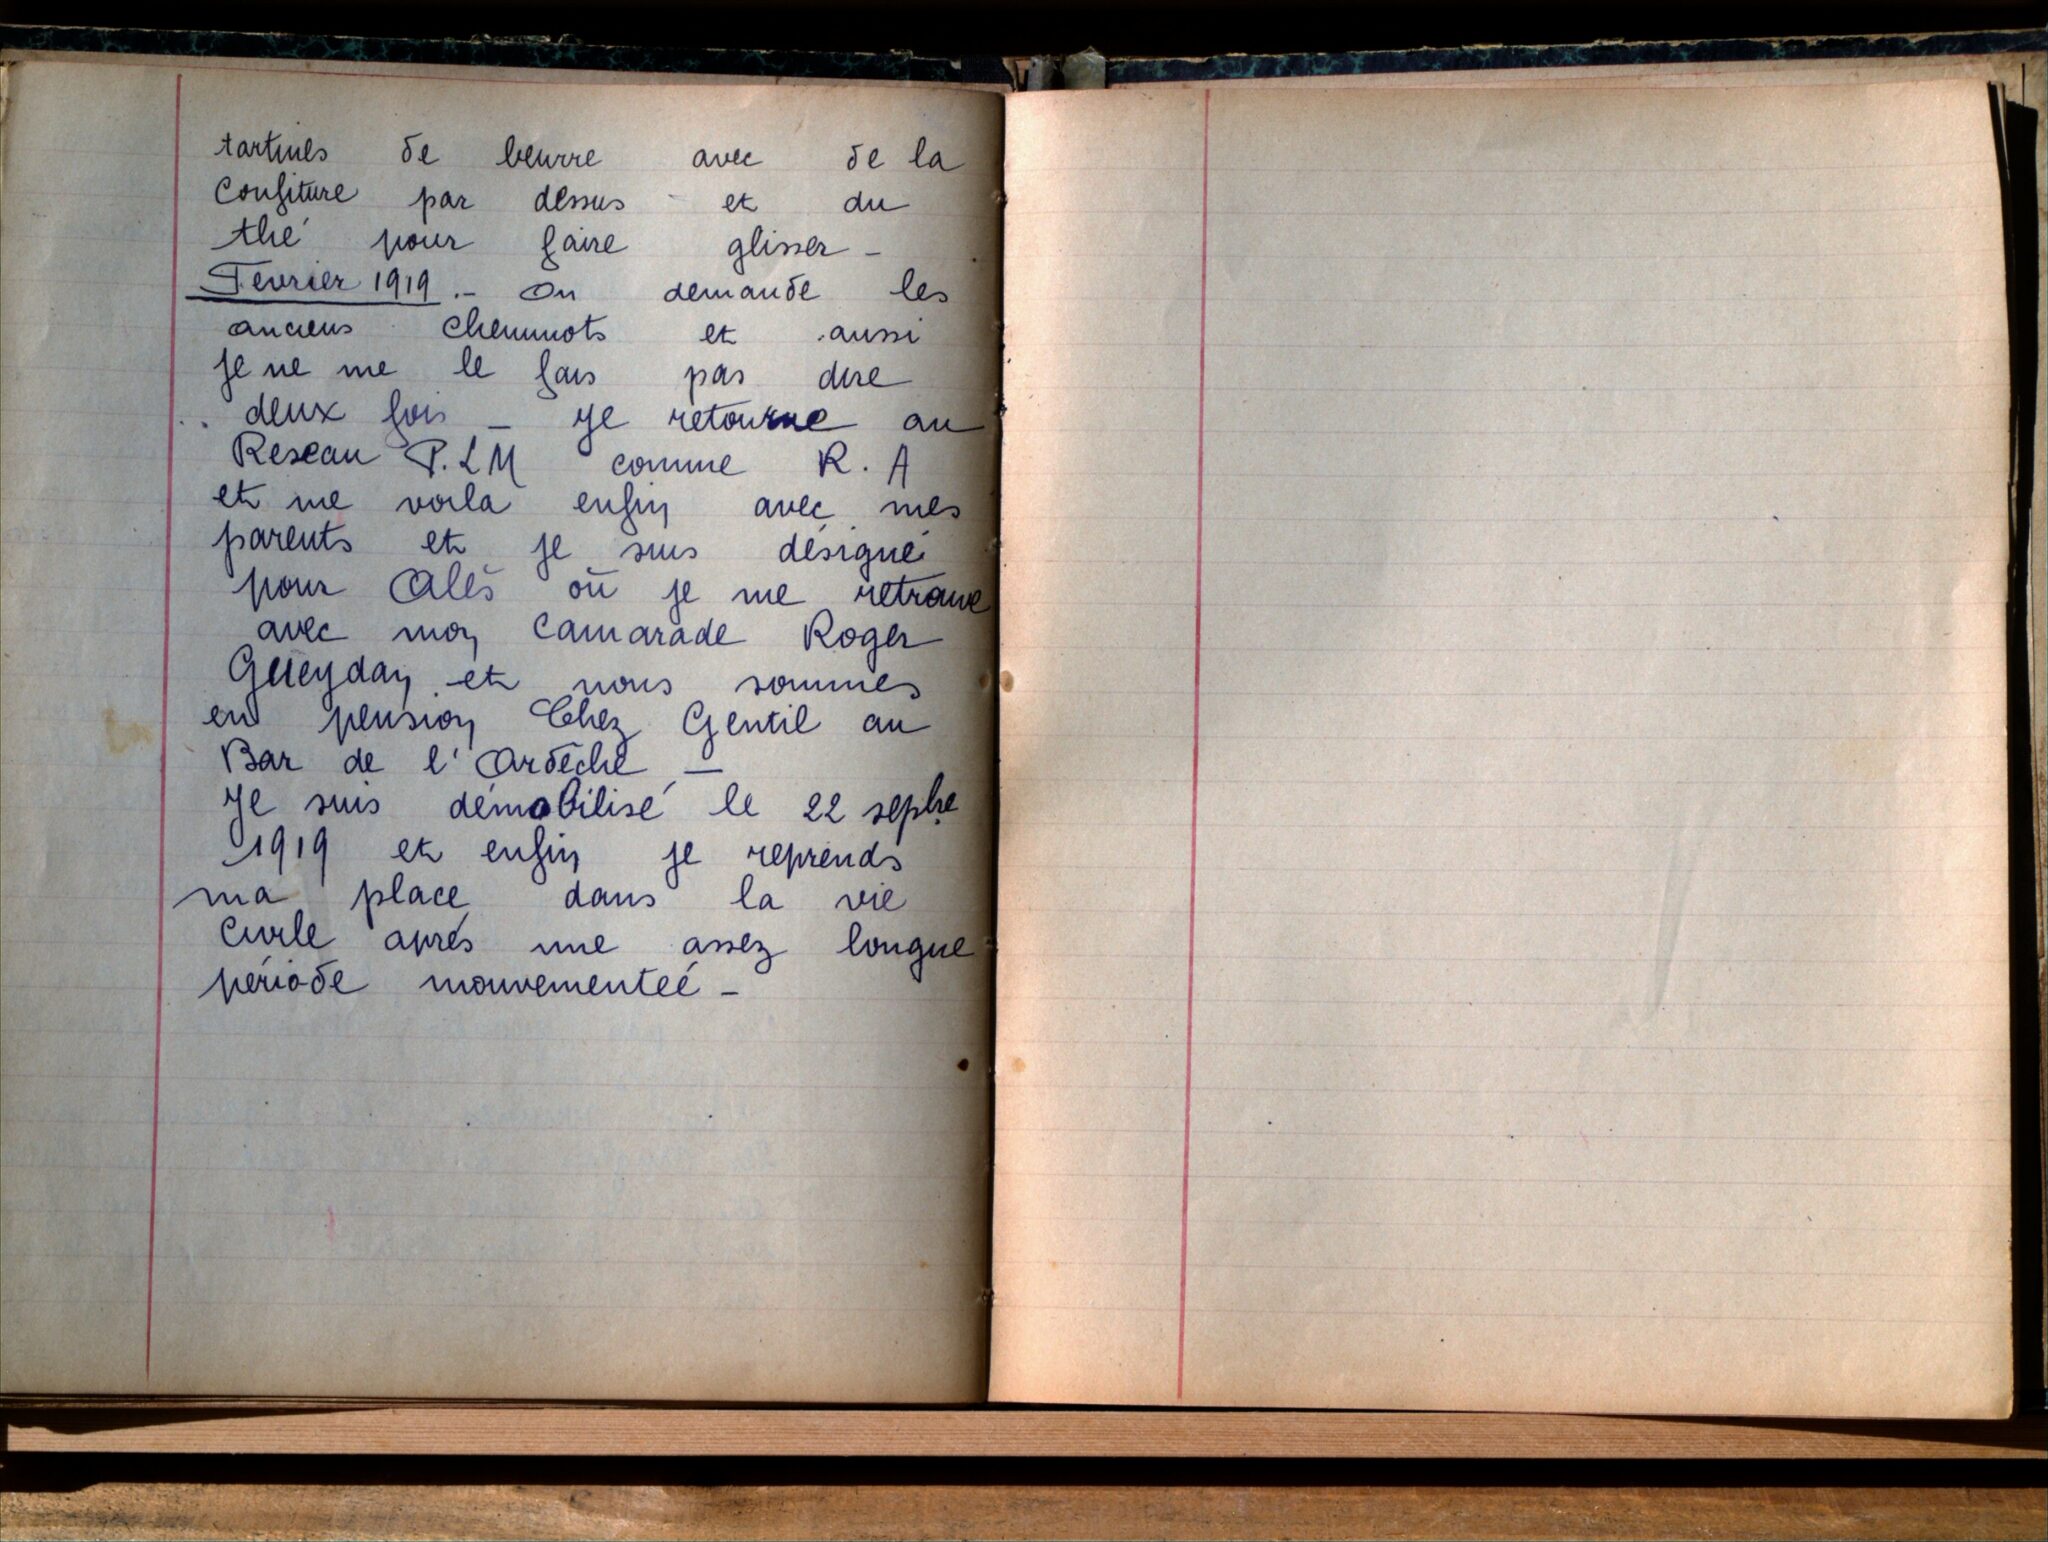 tartines de beurre avec de la
confiture par dessus et du
thé pour faire glisser -
Fevrier 1919. - On demande les
anciens cheminots et aussi
je ne me le fais pas dire
deux fois - Je retourne au
Reseau P.L M comme R. A
et me voila enfin avec mes
parents et je suis désigné
pour Alès où je me retrouve
avec mon camarade Roger
Gueydan et nous sommes
en pension Chez Gentil au
Bar de l'Ardèche -
Je suis démobilisé le 22 sepbre
1919 et enfin je reprends
ma place dans la vie
Civile après une assez longue
période mouvementeé -